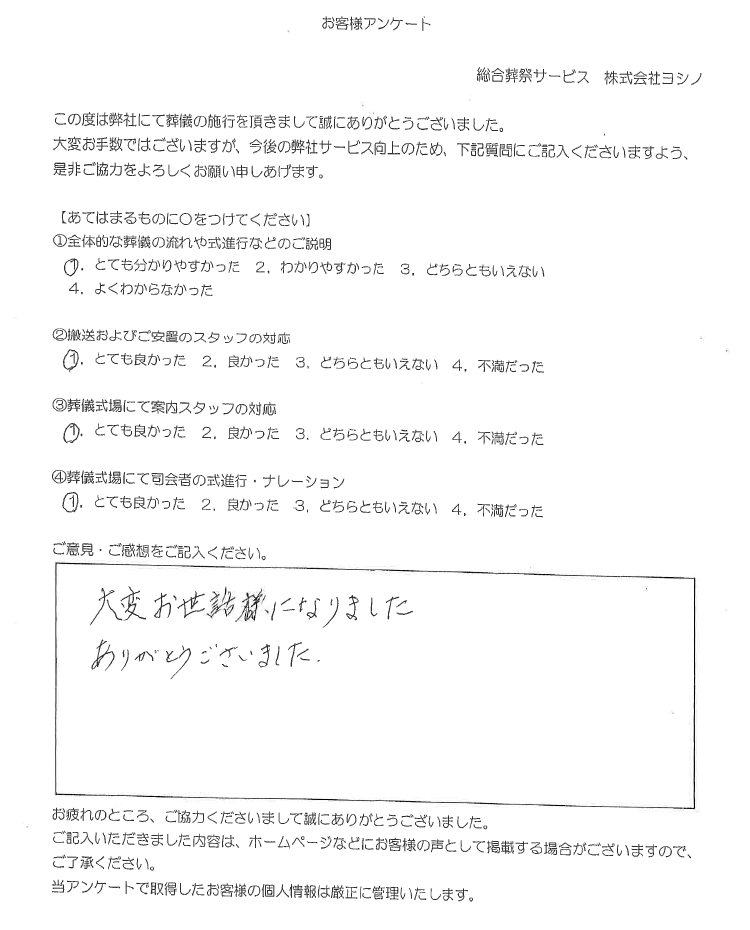 お客様アンケート
総合葬祭サービス　株式会社ヨシノ
この度は弊社にて葬儀の施行を頂きまして誠にありがとうございました。
大変お手数ではございますが、今後の弊社サービス向上のため、下記質問にご記入くださいますよう、
是非ご協力をよろしくお願い申しあげます。
【あてはまるものに〇をつけてください】
①全体的な葬儀の流れや式進行などのご説明
1．とても分かりやすかった　2．わかりやすかった　3．どちらともいえない
4．よくわからなかった
②搬送およびご安置のスタッフの対応
1．とても良かった　2．良かった　3．どちらともいえない　4．不満だった
③葬儀式場にて案内スタッフの対応
1．とても良かった　2．良かった　3．どちらともいえない　4．不満だった
④葬儀式場にて司会者の式進行・ナレーション
1．とても良かった　2．良かった　3．どちらともいえない　4．不満だった
ご意見・ご感想をご記入ください。
大変お世話様になりました
ありがとうございました.
お疲れのところ、ご協力くださいまして誠にありがとうございました。
ご記入いただきました内容は、ホームページなどにお客様の声として掲載する場合がございますので、
ご了承ください。
当アンケートで取得したお客様の個人情報は厳正に管理いたします。